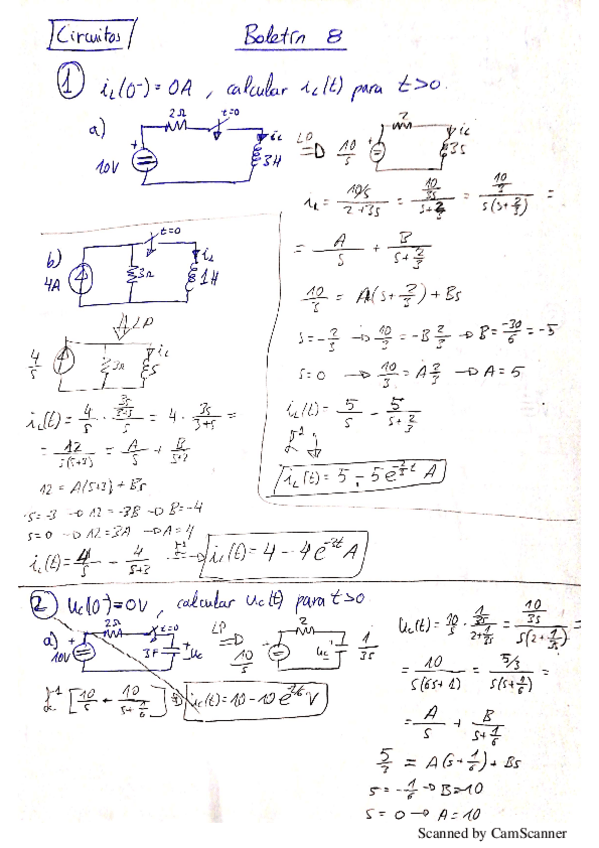 Circuitos Boletín 8
1 iL(0⁻)=0A, calcular iL(t) para t>0.
a) 2Ω t=0 iL 3H 10V
LP ⇒ 10/s 2 iL 3s
iL = (10/s)/(2+3s) = (10/3s)/(s+2/3) = (10/3)/(s(s+2/3)) =
= A/s + B/(s+2/3)
10/3 = A(s+2/3)+Bs
s=-2/3 → 10/3 = -B 2/3 → B = -30/6 = -5
s=0 → 10/3 = A 2/3 → A=5
iL(t) = 5/s - 5/(s+2/3)
ℒ⁻¹
iL(t) = 5 - 5e^(-2/3 t) A
b) t=0 iL 4A 3Ω 1H
LP
4/s 3Ω iL s
= 12/(s(s+3)) = A/s + B/(s+3)
12 = A(s+3)+Bs
s=-3 → 12=-3B → B=-4
s=0 → 12=3A → A=4
iL(t) = 4/s - 4/(s+3) ℒ⁻¹ ⇒ iL(t) = 4 - 4e^(-3t) A
2 Uc(0⁻)=0V, calcular Uc(t) para t>0
a) 2Ω t=0 10V 3F Uc
LP ⇒ 10/s 2 Uc 1/3s
= 10/(s(6s+1)) = (5/3)/(s(s+1/6)) =
= A/s + B/(s+1/6)
5/3 = A(s+1/6)+Bs
s=-1/6 → B=10
s=0 → A=10
Scanned by CamScanner